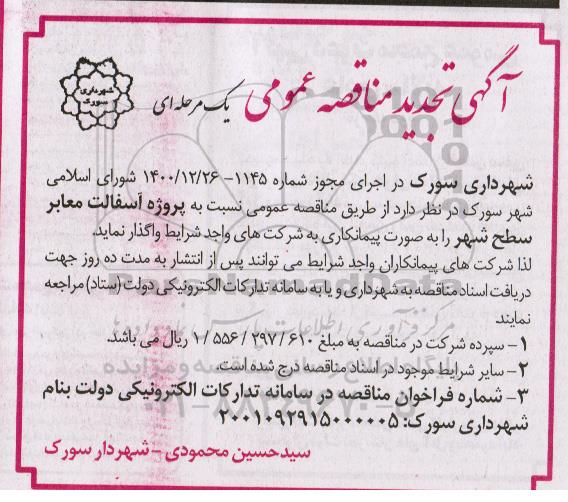 آگهی تجدید مناقصه عمومی یک مرحله ای
شهرداری
سورک
شهرداری سورک در اجرای مجوز شماره ۱۱۴۵- ۱۴۰۰/۱۲/۲۶ شورای اسلامی
شهر سورک در نظر دارد از طریق مناقصه عمومی نسبت به پروژه آسفالت معابر
سطح شهر را به صورت پیمانکاری به شرکت های واجد شرایط واگذار نماید.
لذا شرکت های پیمانکاران واجد شرایط می توانند پس از انتشار به مدت ده روز جهت
دریافت اسناد مناقصه به شهرداری و یا به سامانه تدارکات الکترونیکی دولت (ستاد) مراجعه
نمایند.
۱- سپرده شرکت در مناقصه به مبلغ ۱/۵۵۶/۲۹۷/۶۱۰ ریال می باشد.
۲- سایر شرایط موجود در اسناد مناقصه درج شده است.
۳- شماره فراخوان مناقصه در سامانه تدارکات الکترونیکی دولت بنام
شهرداری سورک: ۲۰۰۱۰۹۲۹۱۵۰۰۰۰۰۵
سیدحسین محمودی - شهردار سورک